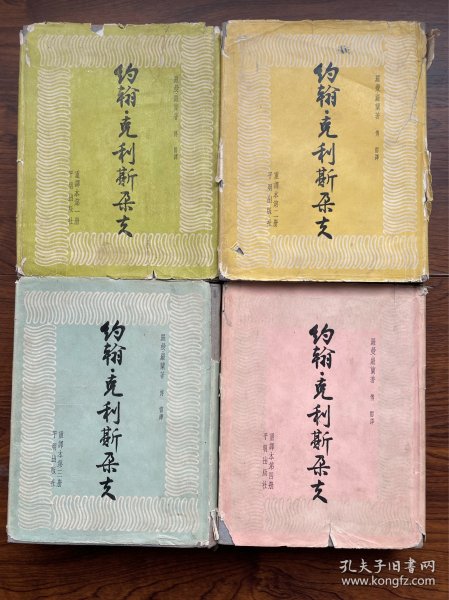 羅曼·羅蘭著 傅雷譯
約翰·克利斯朵夫
重譯本第一册
平明出版社
羅曼·羅蘭著 傅雷譯
約翰·克利斯朵夫
重譯本第二册
平明出版社
羅曼·羅蘭著 傅雷譯
約翰·克利斯朵夫
重譯本第三册
平明出版社
羅曼·羅蘭著 傅雷譯
約翰·克利斯朵夫
重譯本第四册
平明出版社
孔夫子旧书网
www.kongfz.com